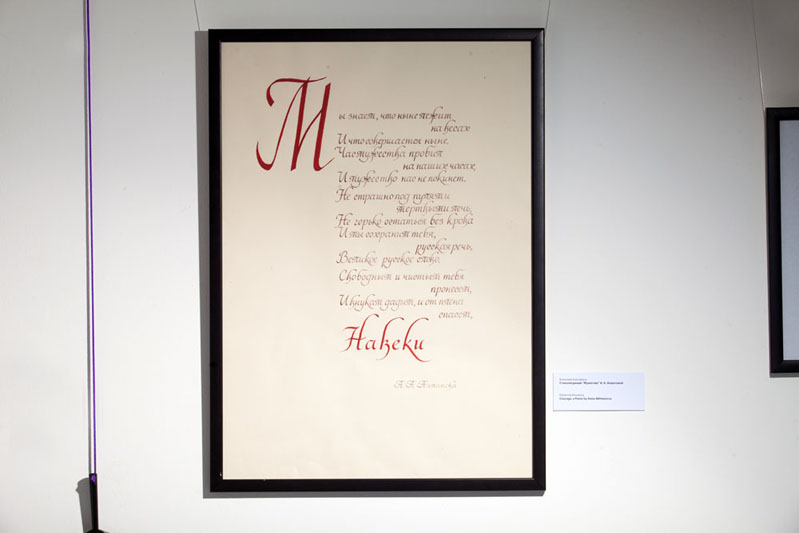 Мы знаем, что ныне лежит
на весах
И что совершается ныне.
Час мужества пробил
на наших часах,
И мужество нас не покинет.
Не страшно под пулями
мертвыми лечь,
Не горько остаться без крова
И мы сохраним тебя,
русская речь,
Великое русское слово.
Свободным и чистым тебя
пронесем,
И внукам дадим, и от плена
спасем,
Навеки
Стихотворение "Мужество" А. А. Ахматовой
Courage, a Poem by Anna Akhmatova